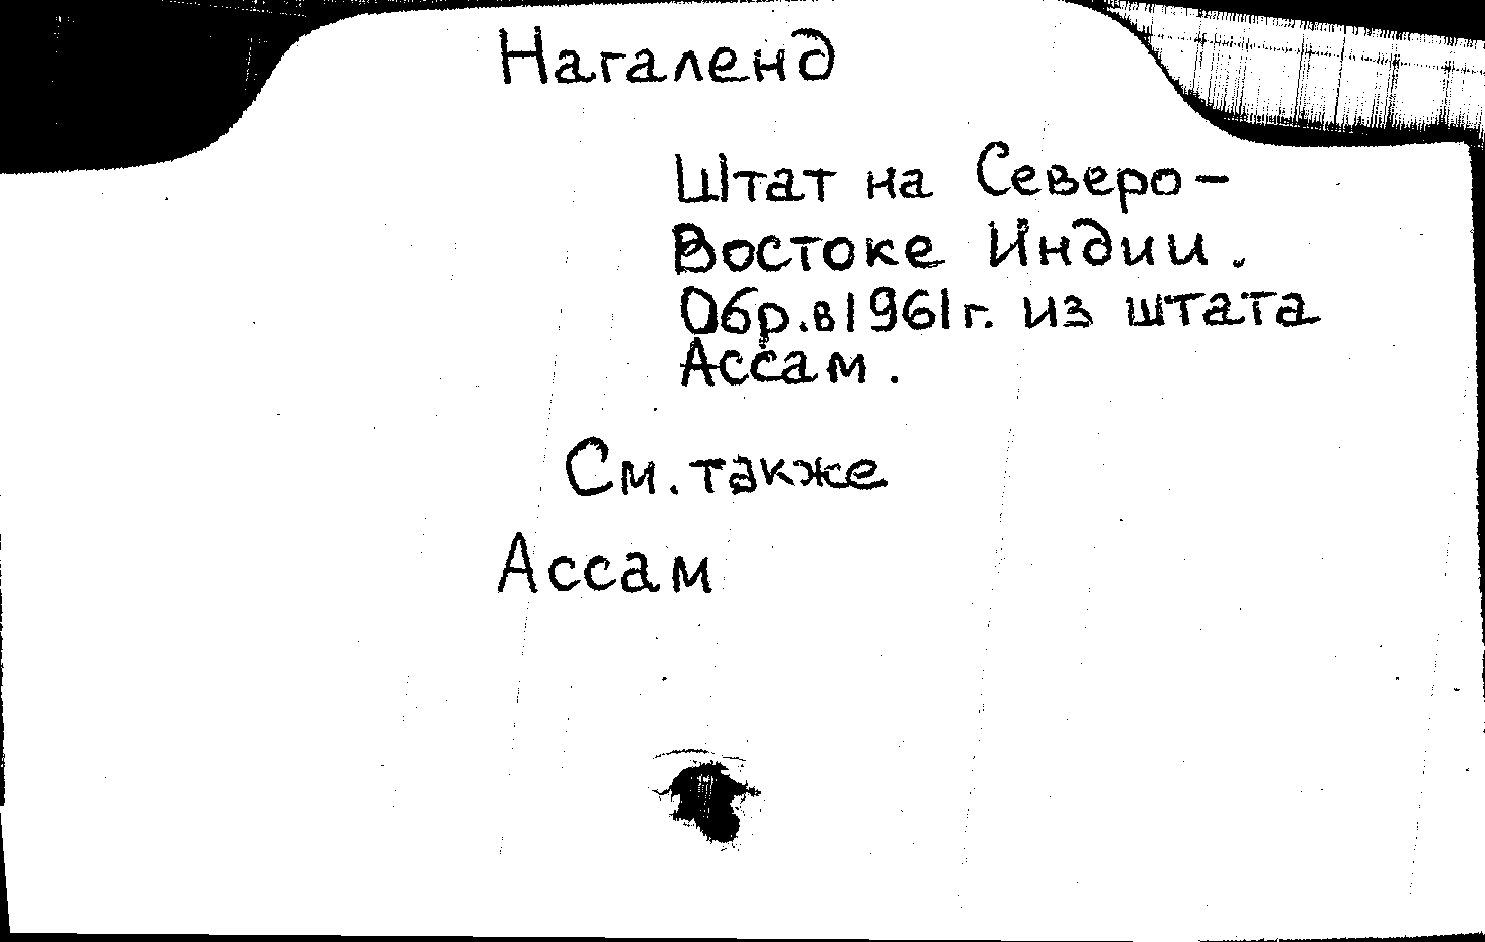 Нагаленд
Штат на Северо-
Востоке Индии.
Обр.в 1961г. из штата
Ассам.
См. также
Ассам